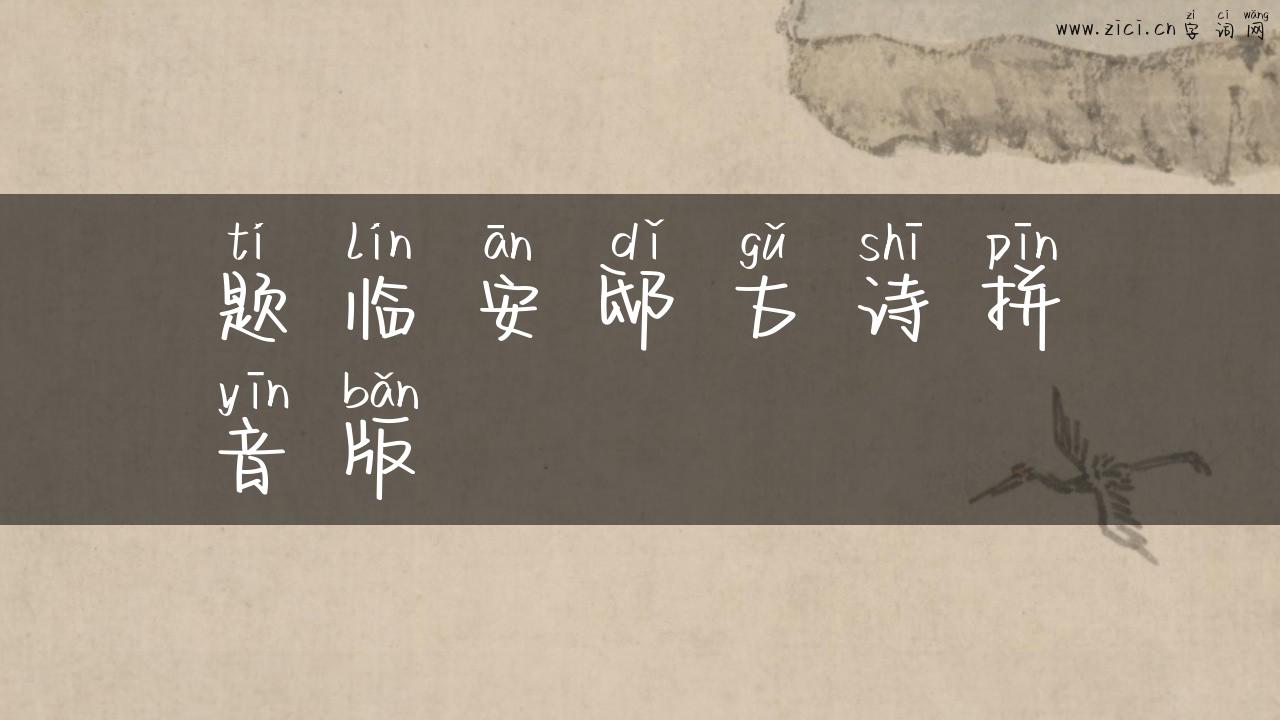 zì cí wǎng
www.zici.cn 字词网
tí lín ān dǐ gǔ shī pīn
题临安邸古诗拼
yīn bǎn
音版